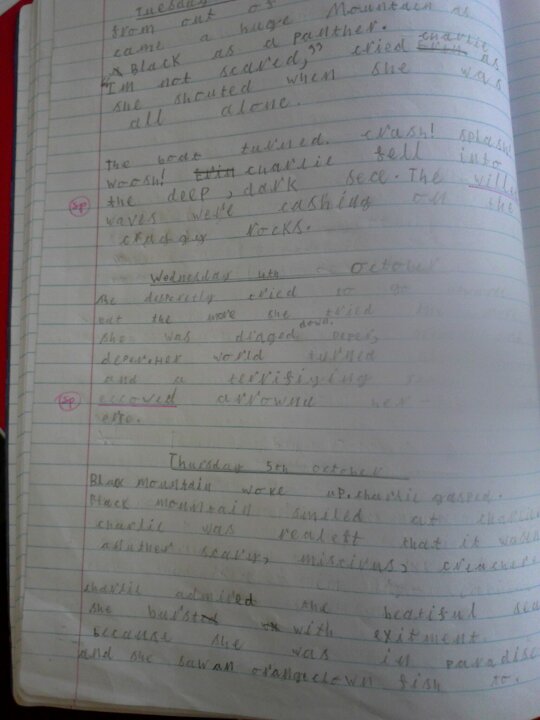 Tuesday
from out of
came a huge Mountain as
Black as a panther.
"I'm not scared," cried charlie
she shouted when she was as
all alone.
The boat turned. crash! splash!
woosh! charlie fell into
the deep, dark sece. The
sp
waves were cashing on the
craggy rocks.
Wednesday 4th October
She desperetly tried to go
but the more she tried the
she was draged down
deper. Her world turned
and a terrifiying
sp
eccoved arrownd her
Thursday 5th October
Black mountain woke up. charlie gasped.
Black mountain smiled at charlie
charlie was realeft that it wasn
another scary, miscivus, creacher
charlie admired the beatiful sea
she buist with exitment.
because she was in paradise
and she saw an orange clown fish so.